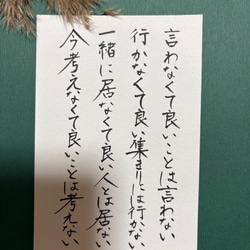 言わなくて良いことは言わない
行かなくて良い集まりには行かない
一緒に居なくて良い人とは居ない
今考えなくて良いことは考えない